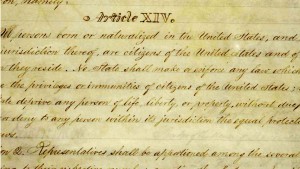 Article XIV.
ll persons born or naturalized in the United States, and
jurisdiction thereof, are citizens of the United States and of
they reside. No State shall make or enforce any law which
the privileges or immunities of citizens of the United States;
tate deprive any person of life, liberty, or property, without due
deny to any person within its jurisdiction the equal protectio
ws.
on 2. Representatives shall be apportioned among the several
to their respective numbers